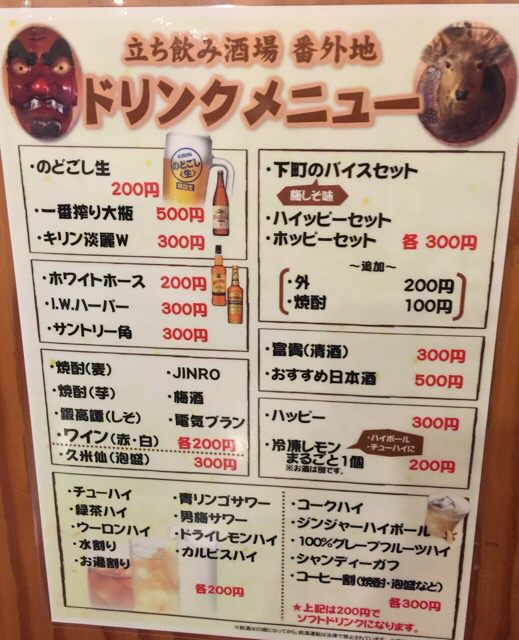 立ち飲み酒場 番外地
ドリンクメニュー
・のどごし生
200円
・一番搾り大瓶 500円
・キリン淡麗W 300円
・ホワイトホース 200円
・I.W.ハーパー 300円
・サントリー角 300円
・焼酎(麦)
・焼酎(芋)
・鍛高譚(しそ)
・ワイン(赤・白)
・JINRO
・梅酒
・電気ブラン
各200円
・久米仙(泡盛) 300円
・下町のバイスセット
梅しそ味
・ハイッピーセット
・ホッピーセット 各 300円
～追加～
・外 200円
・焼酎 100円
・富貴(清酒) 300円
・おすすめ日本酒 500円
・ハッピー 300円
・冷凍レモン
まるごと1個 200円
※お酒は別です。
・ハイボール
・チューハイに
・チューハイ
・緑茶ハイ
・ウーロンハイ
・水割り
・お湯割り
・青リンゴサワー
・男梅サワー
・ドライレモンハイ
・カルピスハイ
各200円
・コークハイ
・ジンジャーハイボール
・100%グレープフルーツハイ
・シャンディーガフ
・コーヒー割(焼酎・泡盛など)
各300円
★上記は200円で
ソフトドリンクになります。
※飲酒は20歳になってから。飲酒運転は法律で禁止されています。